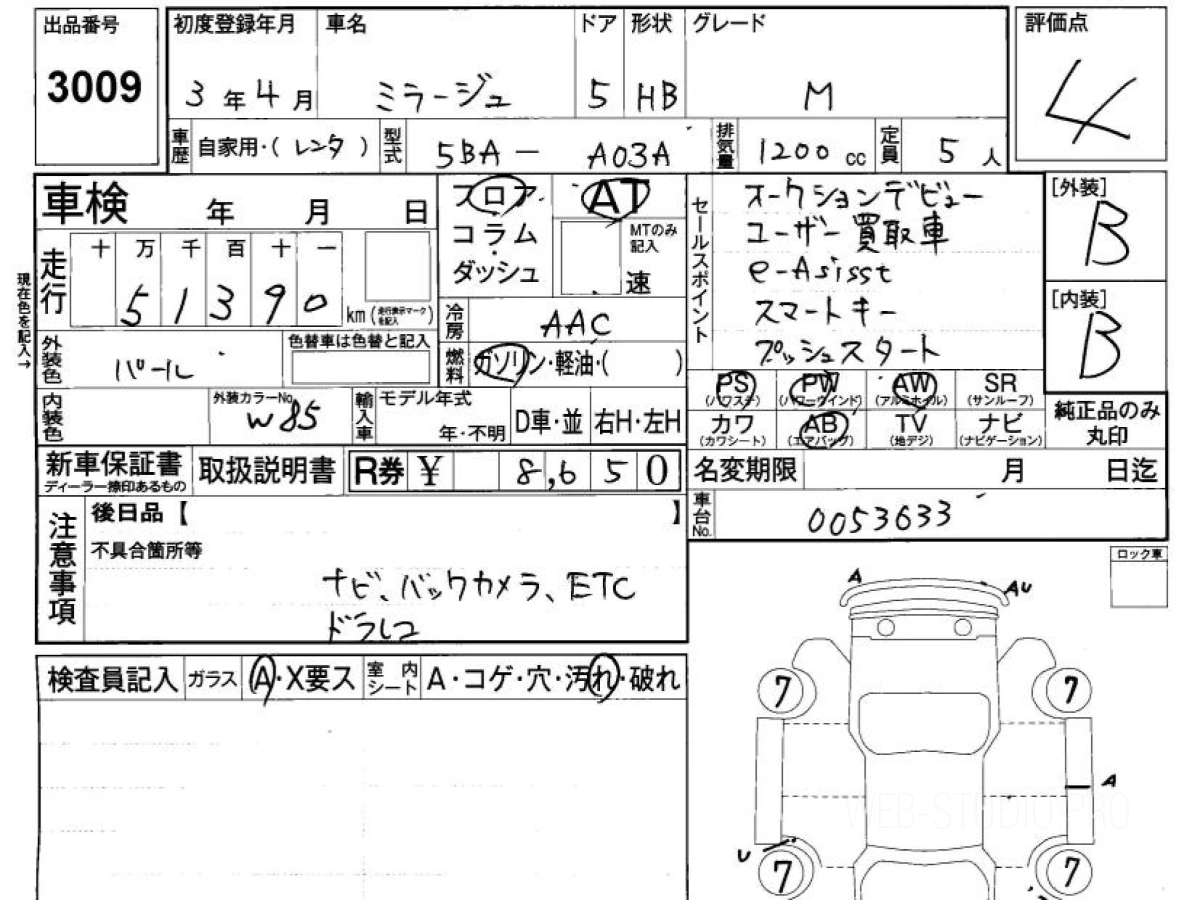 出品番号
3009
初度登録年月 車名 ドア 形状 グレード
3年4月 ミラージュ 5 HB M
評価点
4
車歴 自家用・(レンタ) 型式 5BA - A03A 排気量 1200cc 定員 5人
車検 年 月 日
フロア AT
コラム
ダッシュ
MTのみ記入
速
セールスポイント
オークションデビュー
ユーザー買取車
e-Asisst
スマートキー
プッシュスタート
[外装]
B
[内装]
B
現在色を記入→
走行 十 万 千 百 十 一
51390 km (走行表示マークを記入)
冷房 AAC
外装色 パール 色替車は色替と記入
燃料 ガソリン・軽油・( )
内装色 外装カラーNo. W85
輸入車 モデル年式 年・不明 D車・並 右H・左H
PS (パワステ) PW (パワーウインド) AW (アルミホイル) SR (サンルーフ)
カワ (カワシート) AB (エアバッグ) TV (地デジ) ナビ (ナビゲーション)
純正品のみ
丸印
新車保証書 ディーラー捺印あるもの 取扱説明書 R券 ¥ 8,650
名変期限 月 日迄
車台No. 0053633
注意事項
後日品【 】
不具合箇所等
ナビ、バックカメラ、ETC
ドラレコ
ロック車
検査員記入 ガラス A・X要ス 室内シート A・コゲ・穴・汚れ・破れ
A AU
7 7
A
U
7 7
WEB-STUDIO.PRO